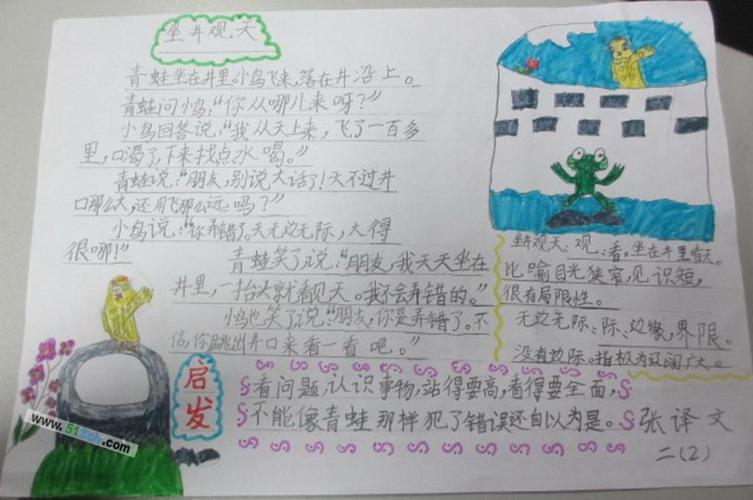 坐井观天
青蛙坐在井里。小鸟飞来,落在井沿上。
青蛙问小鸟:“你从哪儿来呀?”
小鸟回答说,“我从天上来,飞了一百多
里,口渴了,下来找点水喝。”
青蛙说:“朋友,别说大话了!天不过井
口那么大,还用飞那么远吗?”
小鸟说:“你弄错了。天无边无际,大得
很哪!”
青蛙笑了说:“朋友,我天天坐在
井里,一抬头就看见天。我不会弄错的。”
小鸟也笑了说:“朋友,你是弄错了。不
信,你跳出井口来看一看吧。”
坐井观天:观:看。坐在井里看天。
比喻目光狭窄,见识短,
很有局限性。
无边无际:际:边缘,界限。
没有边际。指极为辽阔广大。
启发
看问题,认识事物,站得要高,看得要全面,
不能像青蛙那样犯了错误还自以为是。
张译文
二(2)
www.51Sch.com